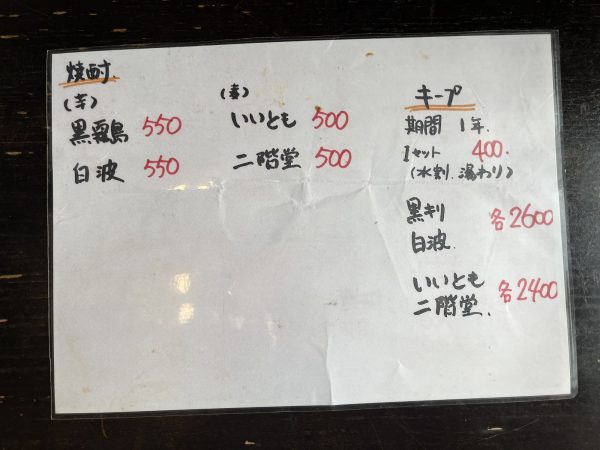 焼酎
(芋)
黒霧島 550
白波 550
(麦)
いいとも 500
二階堂 500
キープ
期間 1年.
1セット 400.
(水割.湯わり)
黒キリ
白波. 各2600
いいとも
二階堂. 各2400